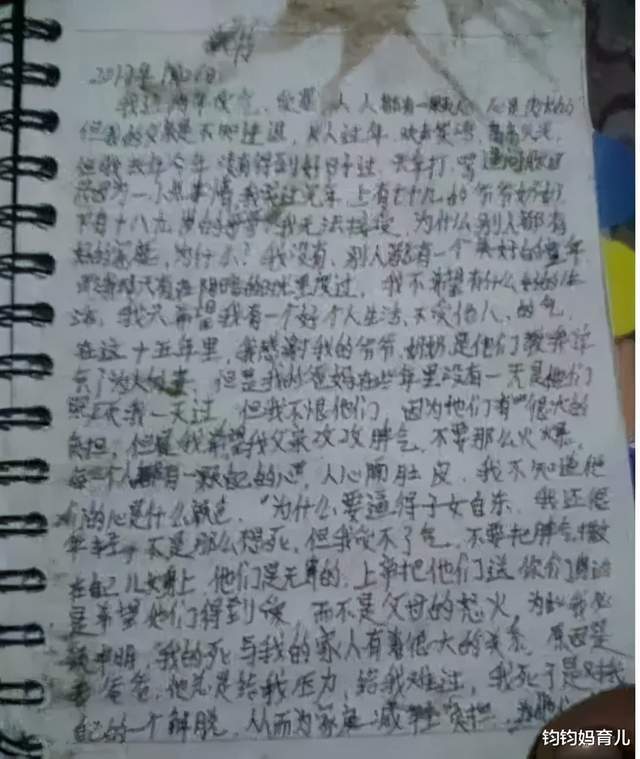 2017年1月21日
但我的父亲是不知进退,别人过年,欢声笑语,高高兴兴
但我去年今年没有得到好日子过,天天打,骂
只因为一小点事情,我没过完年,上有七十几的爷爷奶奶
下有十八九岁的哥哥,我无法接受,为什么别人都有
好的家庭,为什么?我没有,别人都有一个美好的童年
我不希望有什么好的生
活,我只希望我有一个好个人生活,不受他人的气,
在这十五年里,我感谢我的爷爷、奶奶是他们教我学
会了为人处事,但是我的爸妈在些年里没有一天是他们
我一天过,但我不恨他们,因为他们有很大的
负担,但是我希望我父亲改改脾气,不要那么火爆,
每一个人都有一颗红的心,人心隔肚皮,我不知道他
们的心是什么颜色,“为什么要逼得子女自杀,我还很
年轻,不是那么想死,但我受不了气,不要把脾气撒
在自己儿女身上,他们是无辜的,上帝把他们送你们身边
是希望他们得到爱,而不是父母的怒火,为此我必
须申明,我的死与我的家人有着很大的关系,原因是
我爸爸,他总是给我压力,给我难过,我死了是对我
自己的一个解脱,从而为家庭减轻负担,
钧钧妈育儿